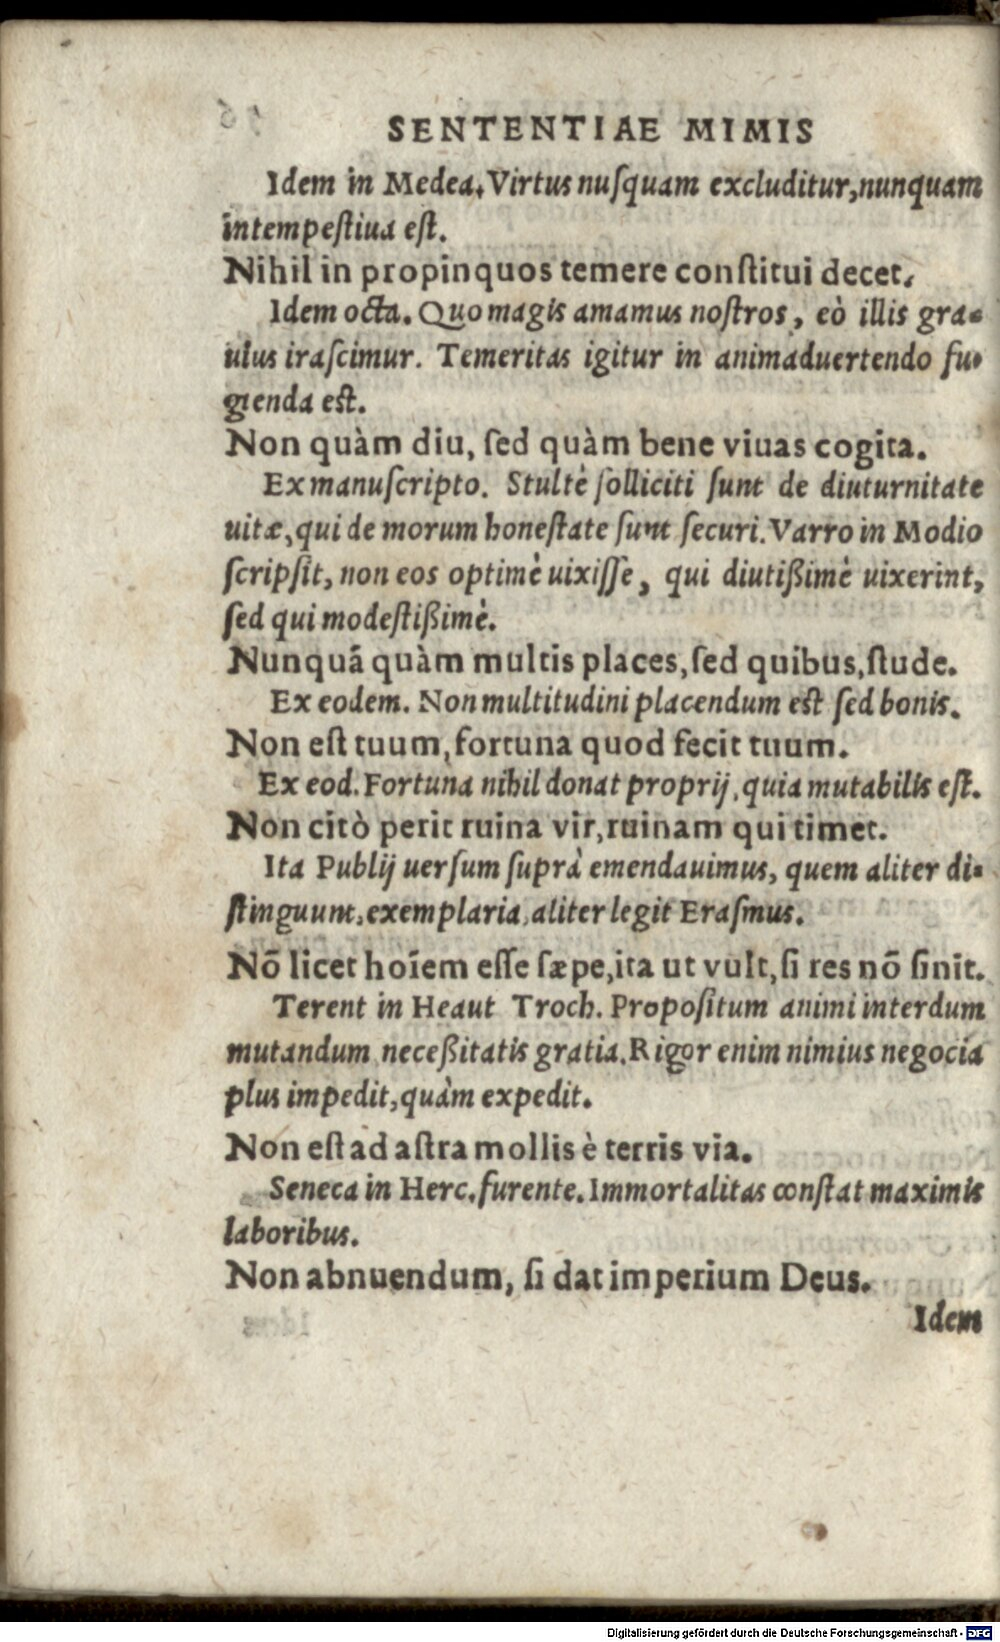 SENTENTIAE MIMIS
Idem in Medea. Virtus nuſquam excluditur, nunquam
intempeſtiua eſt.
Nihil in propinquos temere conſtitui decet.
Idem octa. Quo magis amamus noſtros, eò illis gra-
uius iraſcimur. Temeritas igitur in animaduertendo fu-
gienda eſt.
Non quàm diu, ſed quàm bene viuas cogita.
Ex manuſcripto. Stultè ſolliciti ſunt de diuturnitate
uitæ, qui de morum honeſtate ſunt ſecuri. Varro in Modio
ſcripſit, non eos optimè uixiſſe, qui diutißimè uixerint,
ſed qui modeſtißimè.
Nunquã quàm multis places, ſed quibus, ſtude.
Ex eodem. Non multitudini placendum eſt ſed bonis.
Non eſt tuum, fortuna quod fecit tuum.
Ex eod. Fortuna nihil donat proprij, quia mutabilis eſt.
Non citò perit ruina vir, ruinam qui timet.
Ita Publij uerſum ſuprà emendauimus, quem aliter di-
ſtinguunt, exemplaria, aliter legit Eraſmus.
Nõ licet hoĩem eſſe ſæpe, ita ut vult, ſi res nõ ſinit.
Terent in Heaut Troch. Propoſitum animi interdum
mutandum neceßitatis gratia. Rigor enim nimius negocia
plus impedit, quàm expedit.
Non eſt ad aſtra mollis è terris via.
Seneca in Herc. furente. Immortalitas conſtat maximis
laboribus.
Non abnuendum, ſi dat imperium Deus.
Idem
Digitalisierung gefördert durch die Deutsche Forschungsgemeinschaft - DFG